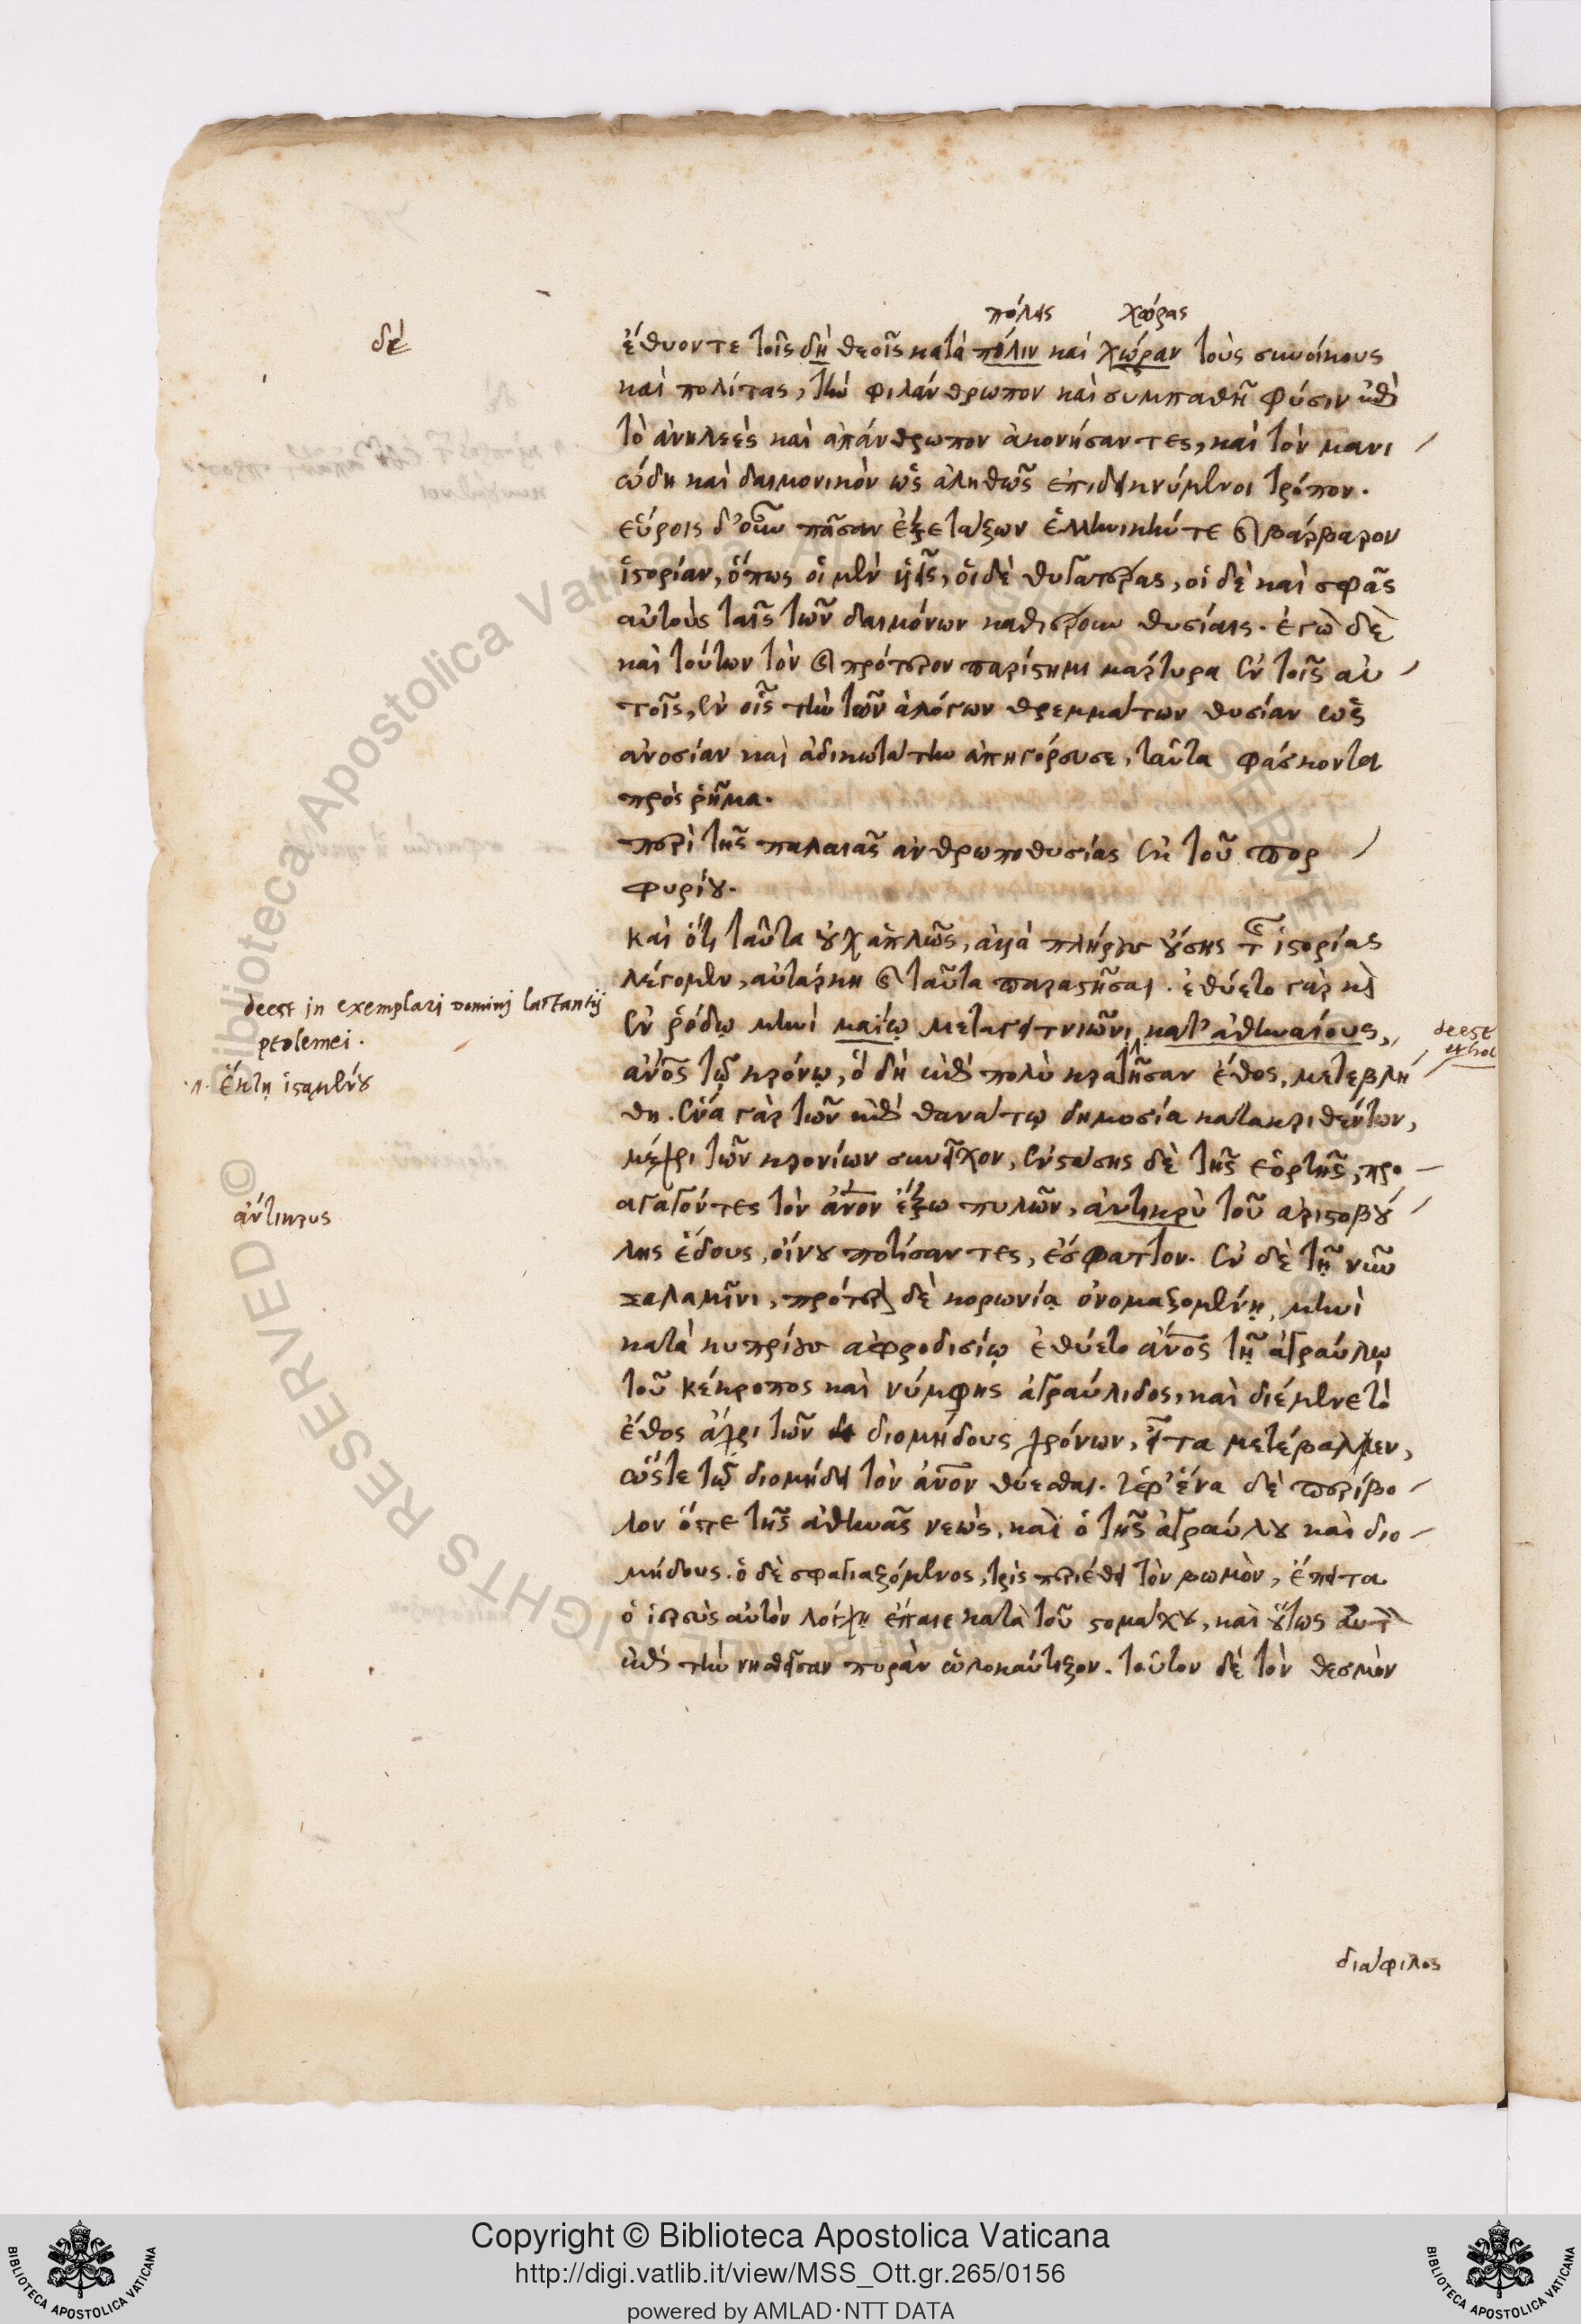 πόλεις χώρας
δέ
ἔθυον τε τοῖς δὴ θεοῖς κατὰ πόλιν καὶ χώραν τοὺς συνοίκους
καὶ πολίτας, τὴν φιλάνθρωπον καὶ συμπαθῆ φύσιν ἐπὶ
τὸ ἀνηλεὲς καὶ ἀπάνθρωπον ἀκονήσαντες, καὶ τὸν μανι
ώδη καὶ δαιμονικὸν ὡς ἀληθῶς ἐπιδεικνύμενοι τρόπον.
εὕροις δ' οὖν πᾶσαν ἐξετάζων ἑλληνικήν τε καὶ βάρβαρον
ἱστορίαν, ὅπως οἱ μὲν υἱεῖς, οἱ δὲ θυγατέρας, οἱ δὲ καὶ σφᾶς
αὐτοὺς ταῖς τῶν δαιμόνων καθιέρουν θυσίαις. ἐγὼ δὲ
καὶ τούτων τὸν καὶ πρότερον παρίστημι μάρτυρα ἐν τοῖς αὐ
τοῖς, ἐν οἷς τὴν τῶν ἀλόγων θρεμμάτων θυσίαν ὡς
ἀνοσίαν καὶ ἀδικωτάτην ἀπηγόρευσε, ταῦτα φάσκοντα
πρὸς ῥῆμα.
περὶ τῆς παλαιᾶς ἀνθρωποθυσίας ἐκ τοῦ πορ
φυρίου.
καὶ ὅτι ταῦτα οὐχ ἁπλῶς, ἀλλὰ πλήρους οὔσης τῆς ἱστορίας
λέγομεν, αὐτάρκη καὶ ταῦτα παραστῆσαι. ἐθύετο γὰρ καὶ
deest in exemplari domini lactantij
ptolemei.
ἐν ῥόδῳ μηνὶ μαίῳ μεταγειτνιῶνι κατ' ἀθηναίους,
deest
et hoc
ἕκτῃ ἱσταμένου
ἄνος τῷ κρόνῳ, ὃ δὴ ἐπὶ πολὺ κρατῆσαν ἔθος, μετεβλή
θη. ἕνα γὰρ τῶν ἐπὶ θανάτῳ δημοσία κατακριθέντων,
μέχρι τῶν κρονίων συνεῖχον, ἐνστάσης δὲ τῆς ἑορτῆς, προ
αγαγόντες τὸν ἄνον ἔξω πυλῶν, ἀντικρὺ τοῦ ἀριστοβού
ἄντικρυς
λης ἕδους, οἴνου ποτίσαντες, ἔσφαττον. ἐν δὲ τῇ νῦν
σαλαμῖνι, πρότερον δὲ κορωνίᾳ ὀνομαζομένῃ, μηνὶ
κατὰ κυπρίους ἀφροδισίῳ ἐθύετο ἄνος τῇ ἀγραύλῳ
τοῦ κέκροπος καὶ νύμφης ἀγραύλιδος, καὶ διέμενε τὸ
ἔθος ἄχρι τῶν διομήδους χρόνων, εἶτα μετέβαλεν,
ὥστε τῷ διομήδει τὸν ἄνον θύεσθαι. ὑφ' ἕνα δὲ περίβο
λον ὅ τε τῆς ἀθηνᾶς νεὼς, καὶ ὁ τῆς ἀγραύλου καὶ διο
μήδους. ὁ δὲ σφαγιαζόμενος, τρὶς περιέθει τὸν βωμὸν, ἔπειτα
ὁ ἱερεὺς αὐτὸν λόγχῃ ἔπαιε κατὰ τοῦ στομάχου, καὶ οὕτως αὐτὸν
ἐπὶ τὴν νησθεῖσαν πυρὰν ὡλοκαύτιζον. τοῦτον δὲ τὸν θεσμὸν
διάφιλος
© Biblioteca Apostolica Vaticana ALL RIGHTS RESERVED
Copyright © Biblioteca Apostolica Vaticana
http://digi.vatlib.it/view/MSS_Ott.gr.265/0156
powered by AMLAD·NTT DATA
BIBLIOTECA APOSTOLICA VATICANA
BIBLIOTECA APOSTOLICA VATICANA